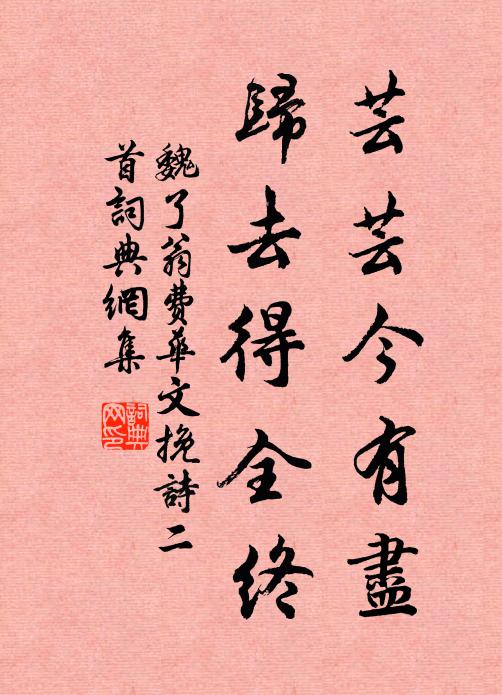 芸芸今有盡
歸去得全終
魏了翁費華文挽詩二
首詞典網集
詞典
网印